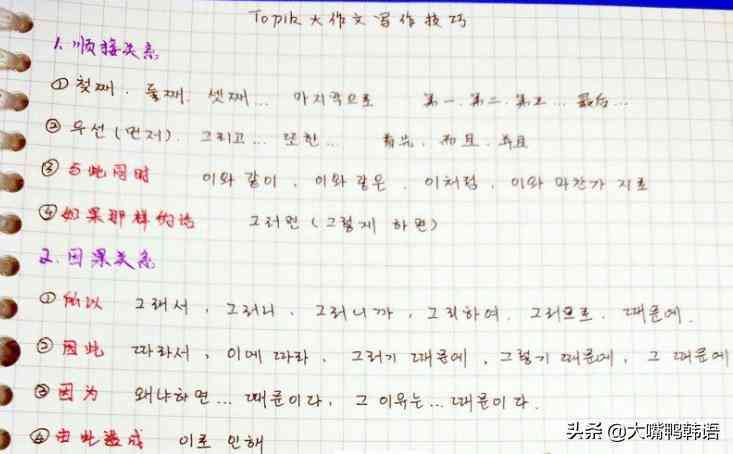 Topik 大作文写作技巧
1. 顺接关系
① 첫째. 둘째. 셋째... 마지막으로 第一.第二.第三... 最后...
② 우선(먼저). 그리고... 또한... 首先. 而且. 并且
③ 与此同时 이와 같이, 이와 같은. 이처럼, 이와 마찬가지로
④ 如果那样的话 그러면(그렇게 하면)
2. 因果关系
① 所以 그래서, 그러니, 그러니까, 그리하여. 그러므로. 때문에.
② 因此 따라서, 이에 따라, 그러기 때문에, 그렇기 때문에, 그 때문에
③ 因为 왜냐하면... 때문이다, 그 이유는... 때문이다.
④ 由此造成 이로 인해
头条 @大嘴鸭韩语